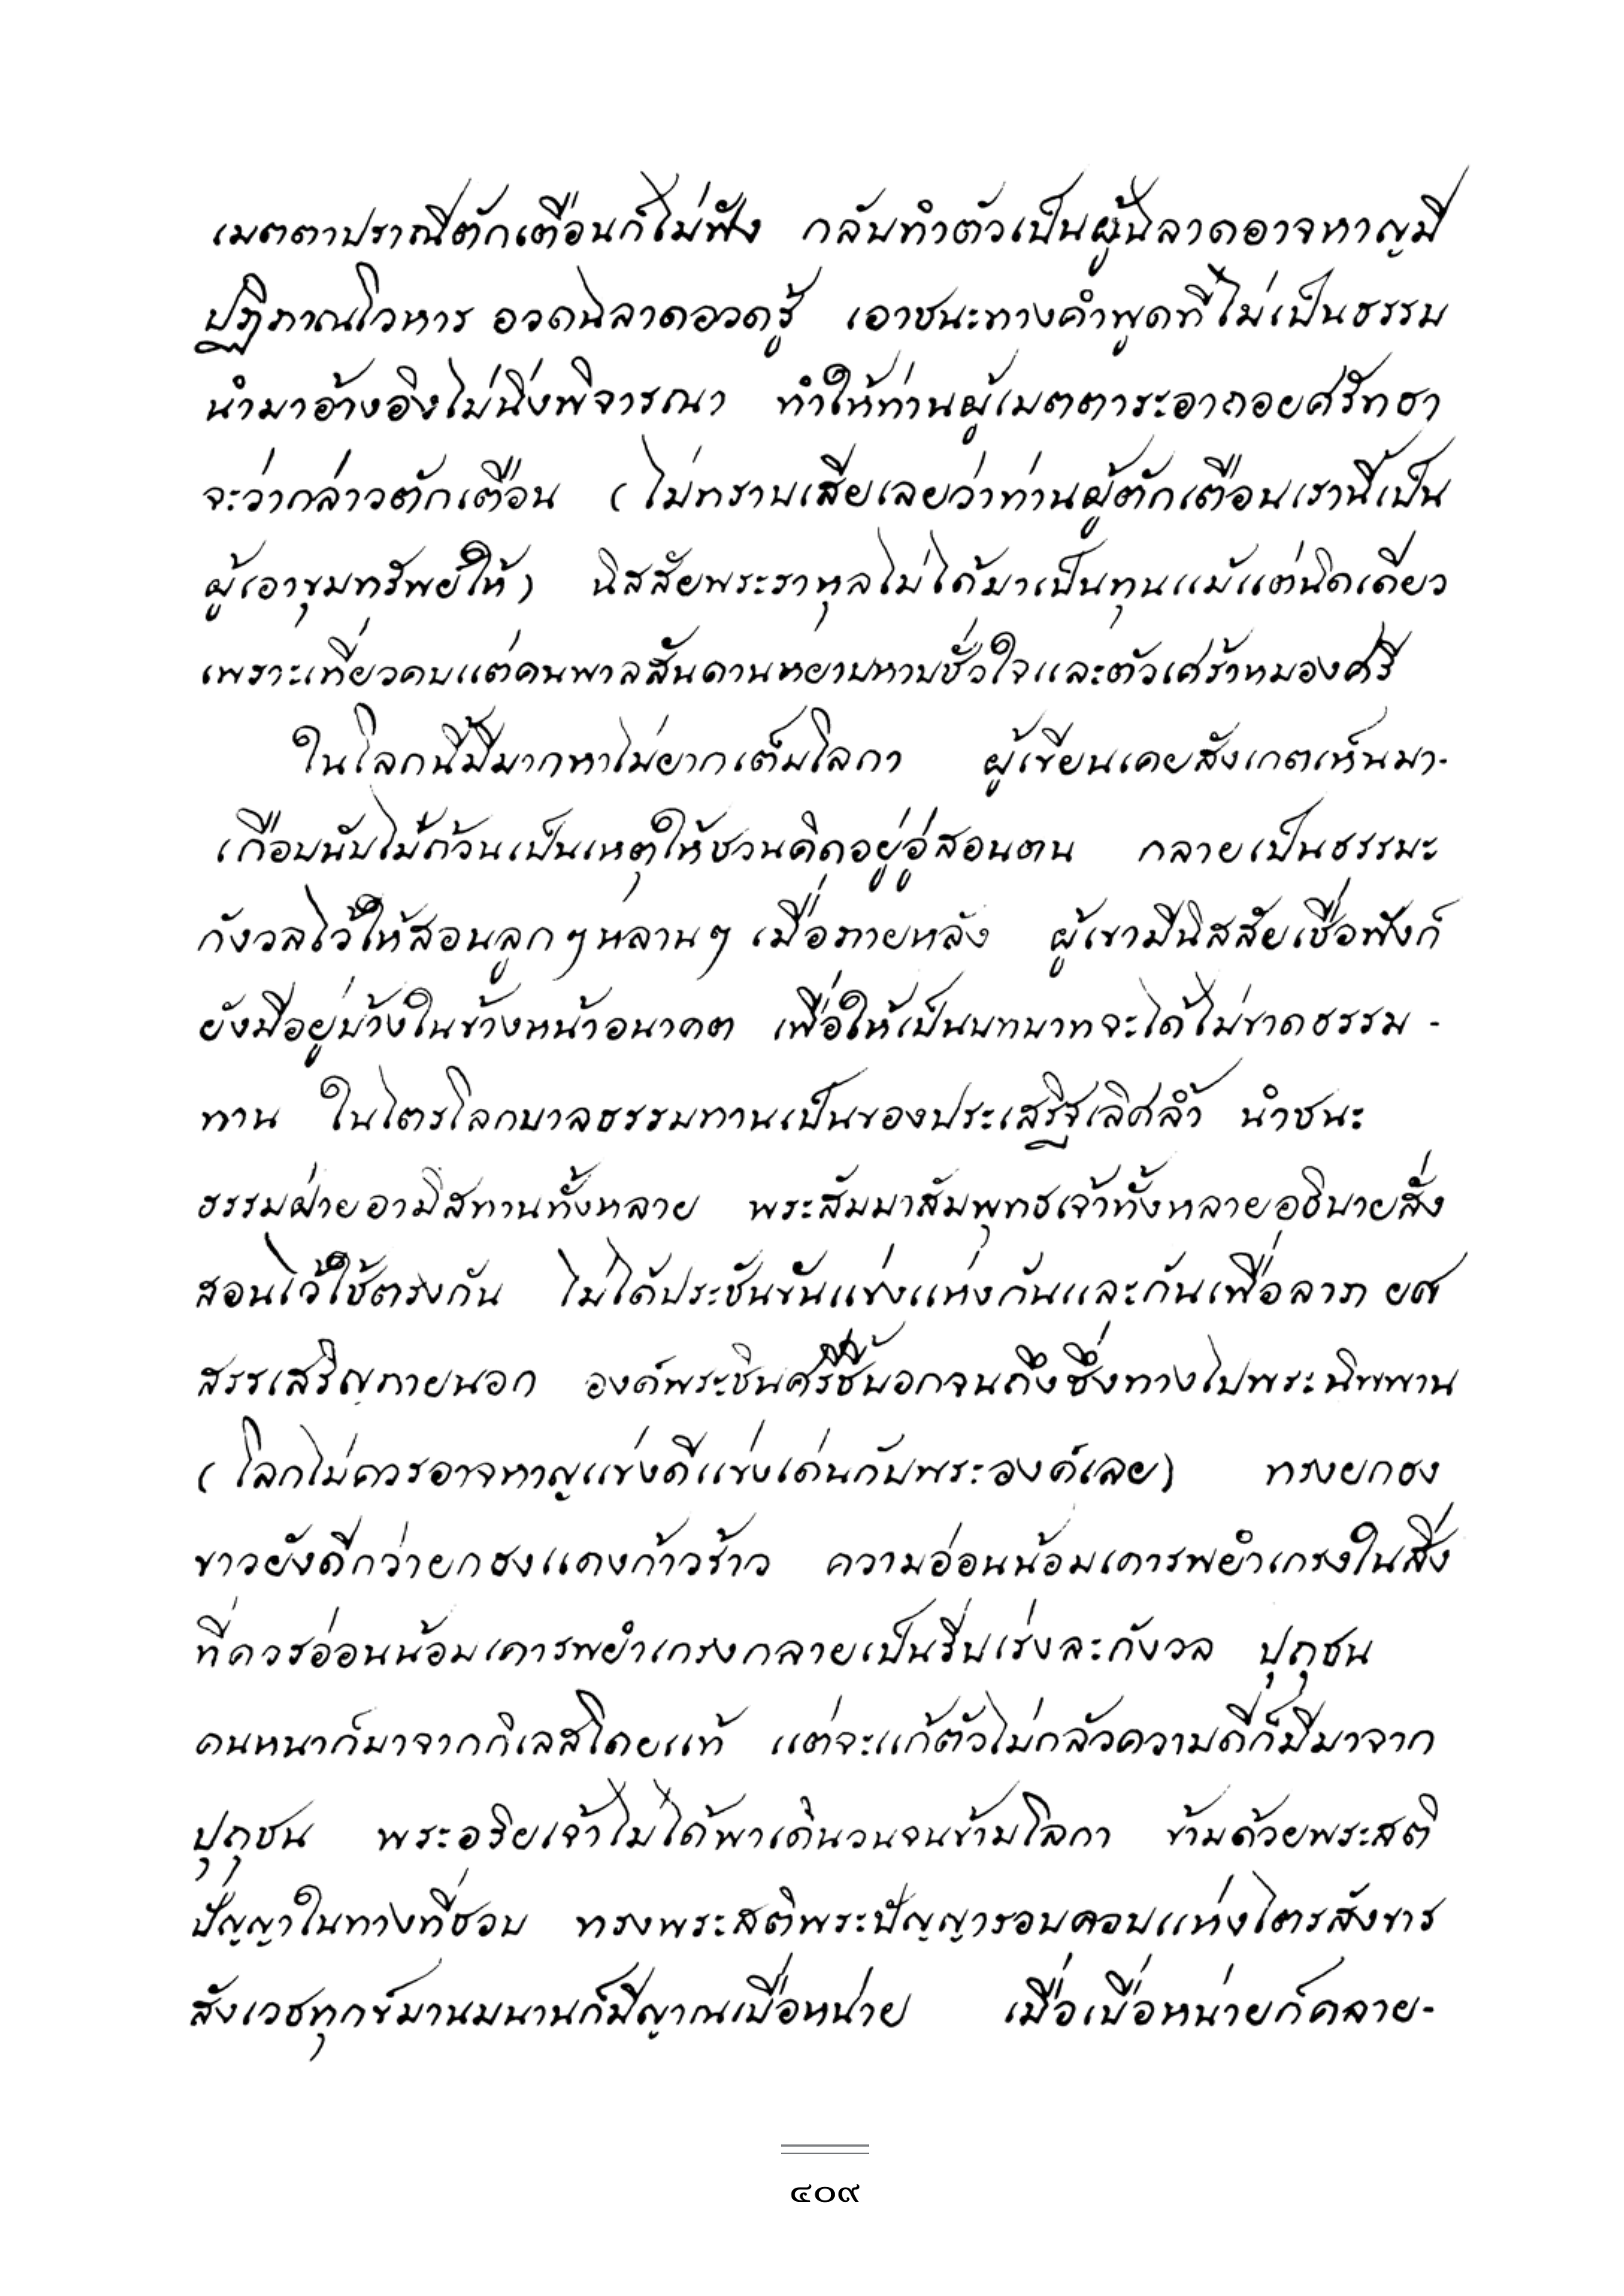 เมตตาปราณีตักเตือนก็ไม่ฟัง กลับทำตัวเป็นผู้ฉลาดอาจหาญมี
ปฏิภาณโวหาร อวดฉลาดอวดรู้ เอาชนะทางคำพูดที่ไม่เป็นธรรม
นำมาอ้างอิงไม่นิ่งพิจารณา ทำให้ท่านผู้เมตตาระอาถอยศรัทธา
จะว่ากล่าวตักเตือน (ไม่ทราบเสียเลยว่าท่านผู้ตักเตือนเรานี้เป็น
ผู้เอาขุมทรัพย์ให้) นิสสัยพระราหุลไม่ได้มาเป็นทุนแม้แต่นิดเดียว
เพราะเที่ยวคบแต่คนพาลสันดานหยาบหาบชั่วใจและตัวเศร้าหมองศรี
ในโลกนี้มีมากหาไม่ยากเต็มโลกา ผู้เขียนเคยสังเกตเห็นมา-
เกือบนับไม่ถ้วนเป็นเหตุให้ชวนคิดอยู่อู่สอนตน กลายเป็นธรรมะ
กังวลไว้ให้สอนลูกๆหลานๆ เมื่อภายหลัง ผู้เขามีนิสสัยเชื่อฟังก็
ยังมีอยู่บ้างในข้างหน้าอนาคต เพื่อให้เป็นบทบาทจะได้ไม่ขาดธรรม -
ทาน ในไตรโลกบาลธรรมทานเป็นของประเสริฐเลิศล้ำ นำชนะ
ธรรมฝ่ายอามิสทานทั้งหลาย พระสัมมาสัมพุทธเจ้าทั้งหลายอธิบายสั่ง
สอนไว้ใช้ตรงกัน ไม่ได้ประชันขันแข่งแห่งกันและกันเพื่อลาภ ยศ
สรรเสริญภายนอก องค์พระชินศรีชี้บอกจนถึงซึ่งทางไปพระนิพพาน
(โลกไม่ควรอาจหาญแข่งดีแข่งเด่นกับพระองค์เลย) ทรงยกธง
ขาวยังดีกว่ายกธงแดงก้าวร้าว ความอ่อนน้อมเคารพยำเกรงในสิ่ง
ที่ควรอ่อนน้อมเคารพยำเกรงกลายเป็นรีบเร่งละกังวล ปุถุชน
คนหนาก็มาจากกิเลสโดยแท้ แต่จะแก้ตัวไม่กลัวความดีก็มีมาจาก
ปุถุชน พระอริยเจ้าไม่ได้พาเดินวนจนข้ามโลกา ข้ามด้วยพระสติ
ปัญญาในทางที่ชอบ ทรงพระสติพระปัญญารอบคอบแห่งไตรสังขาร
สังเวชทุกข์มานมนานก็มีญาณเบื่อหน่าย เมื่อเบื่อหน่ายก็คลาย-
๔๐๙